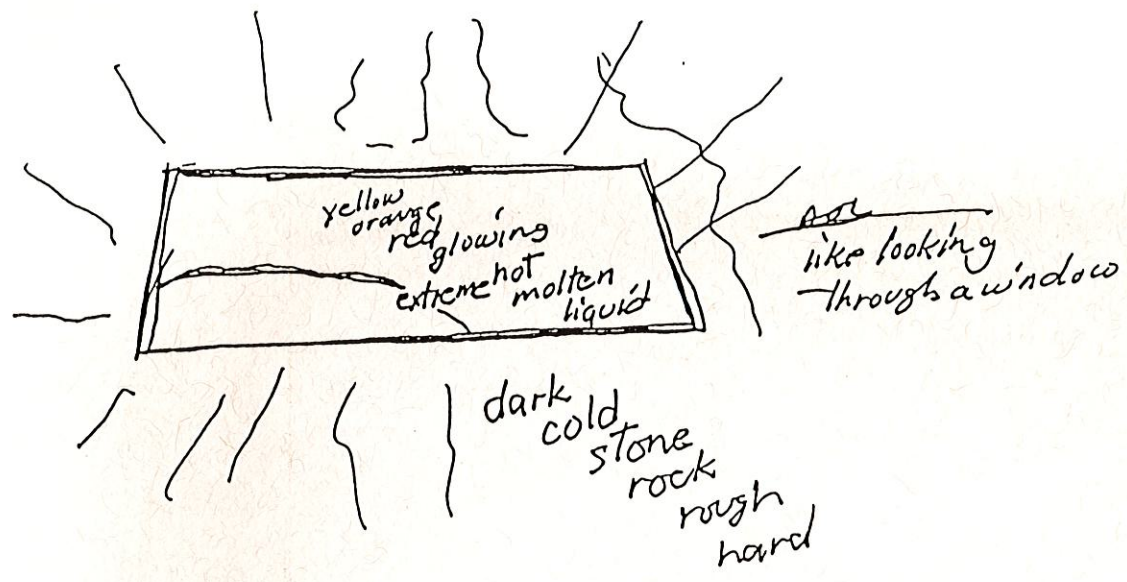 yellow
orange
red
glowing
hot
extreme
molten
liquid
like looking
through a window
dark
cold
stone
rock
rough
hard